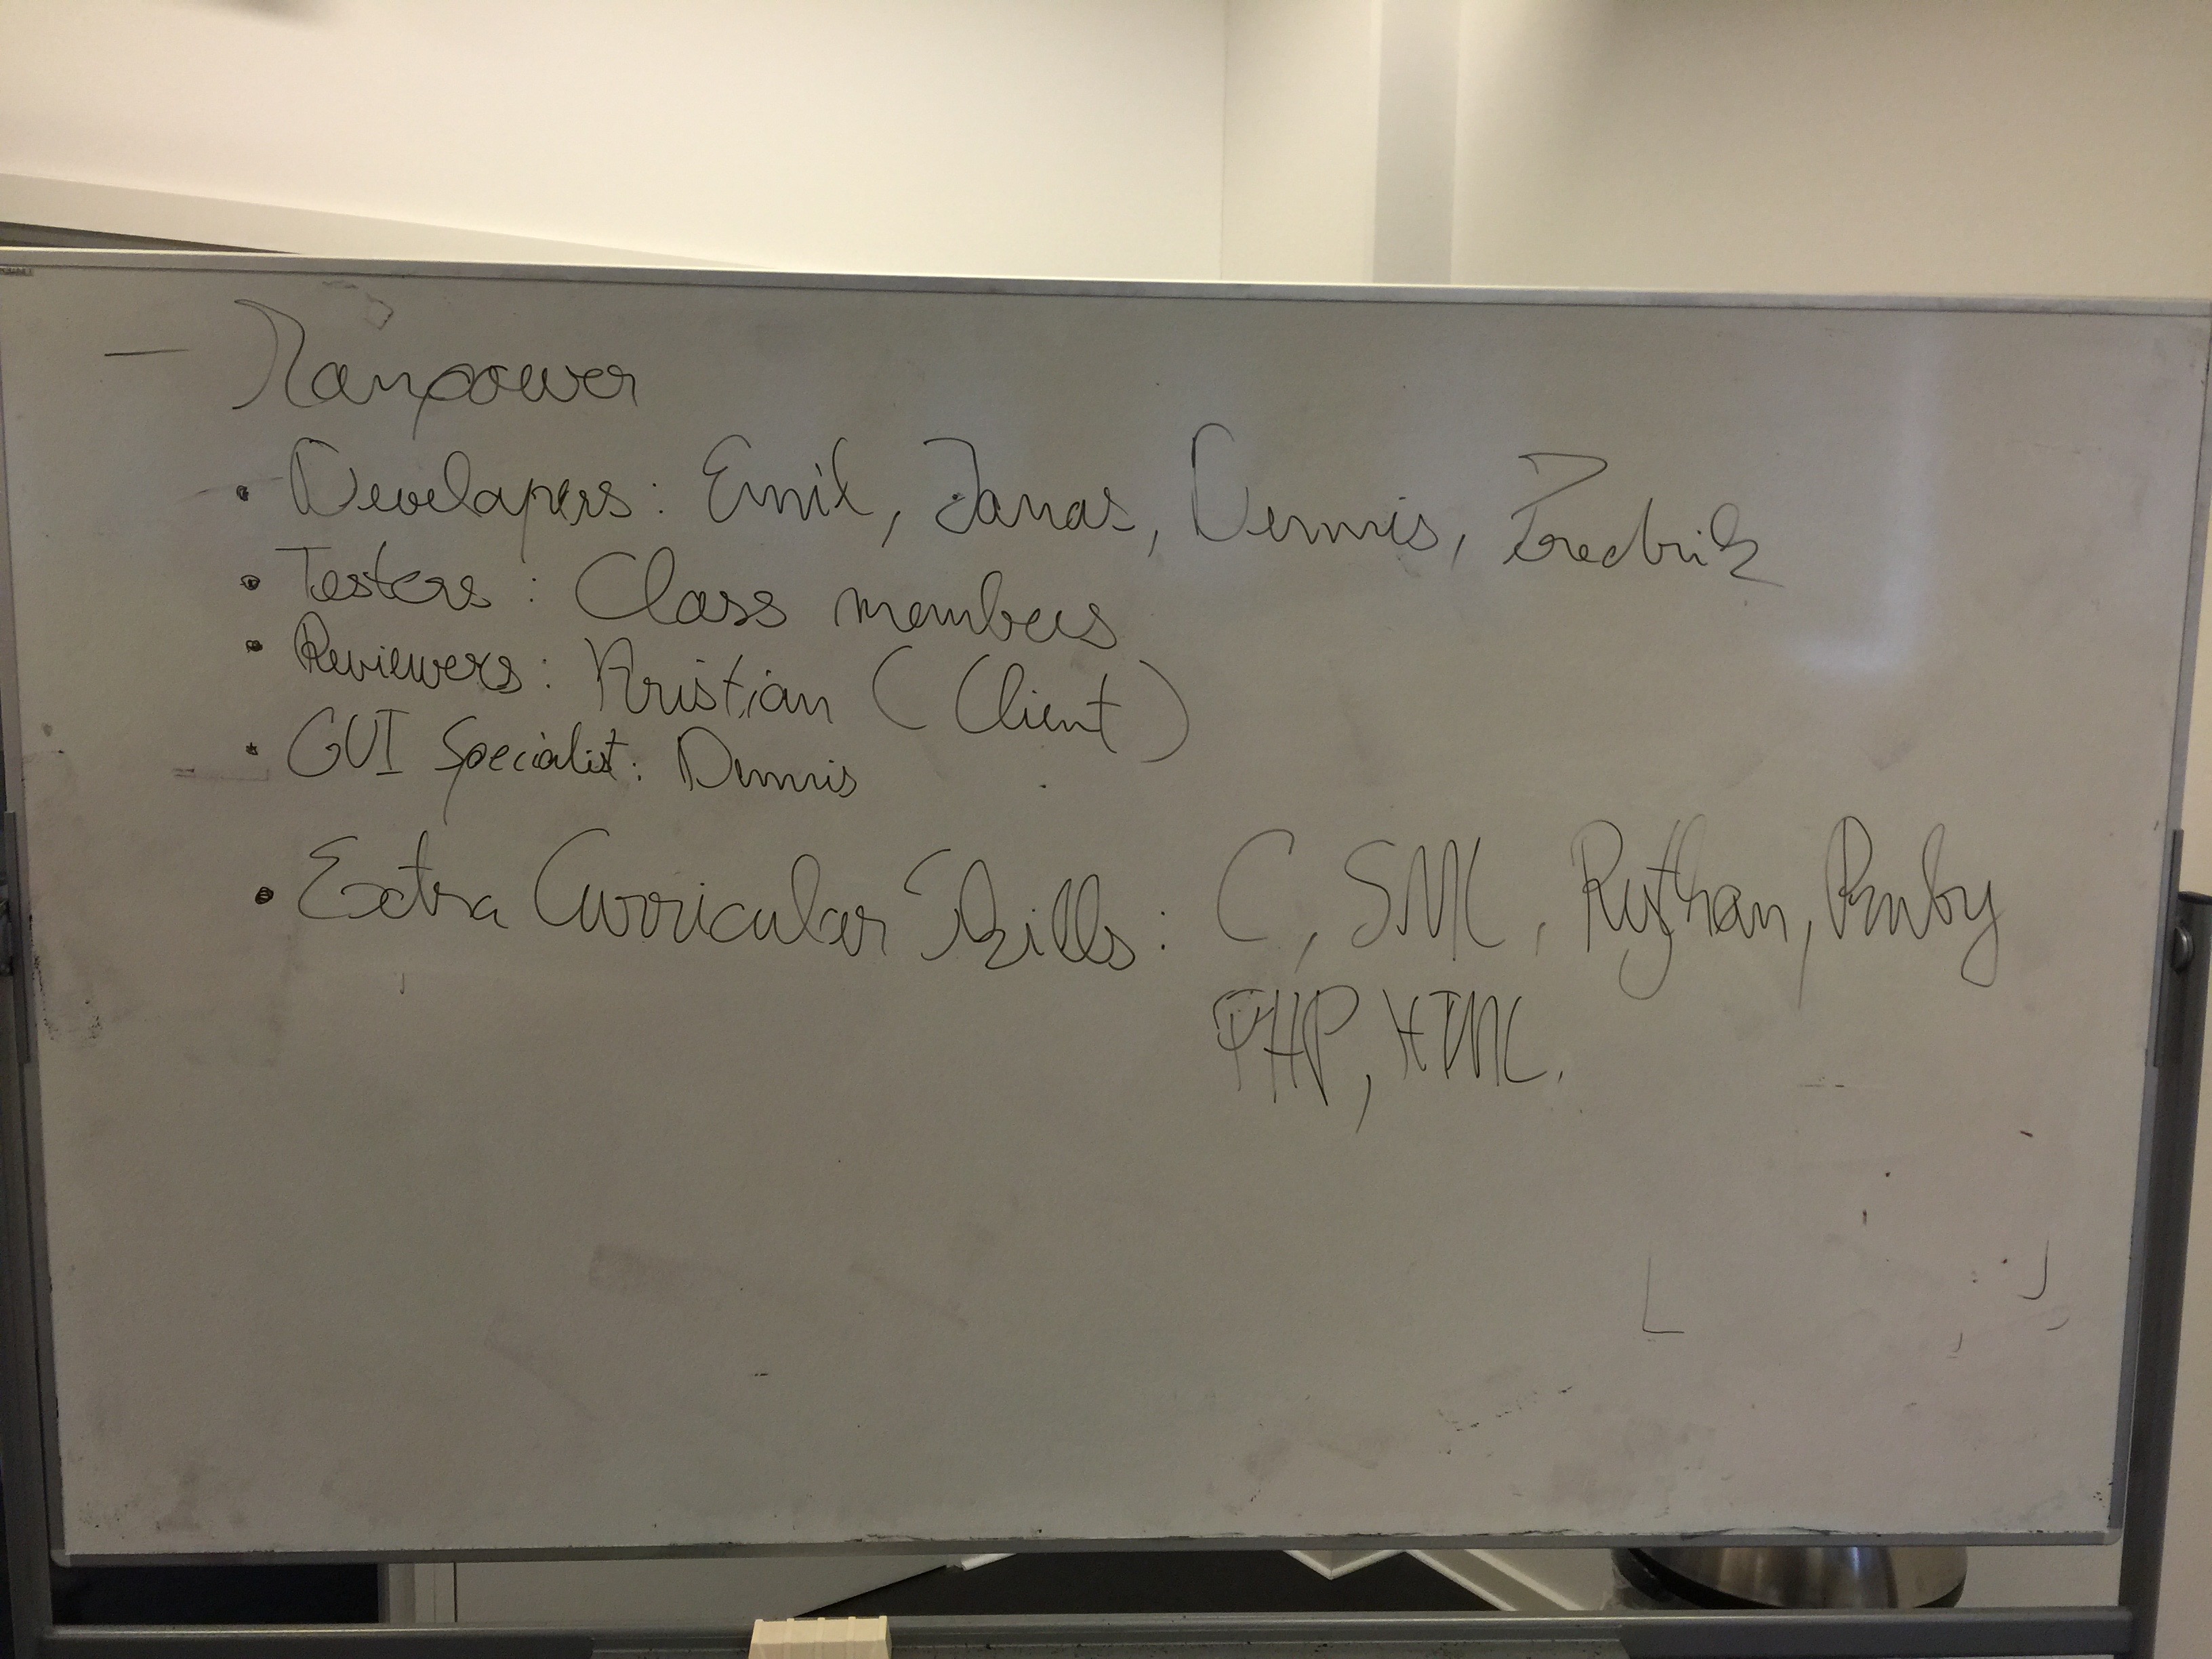 — Manpower
• Developers: Emil, Jonas, Dennis, Fredrik
• Testers: Class members
• Reviewers: Kristian (Client)
• GUI Specialist: Dennis
• Extra Curricular Skills: C, SML, Python, Ruby
PHP, HTML.